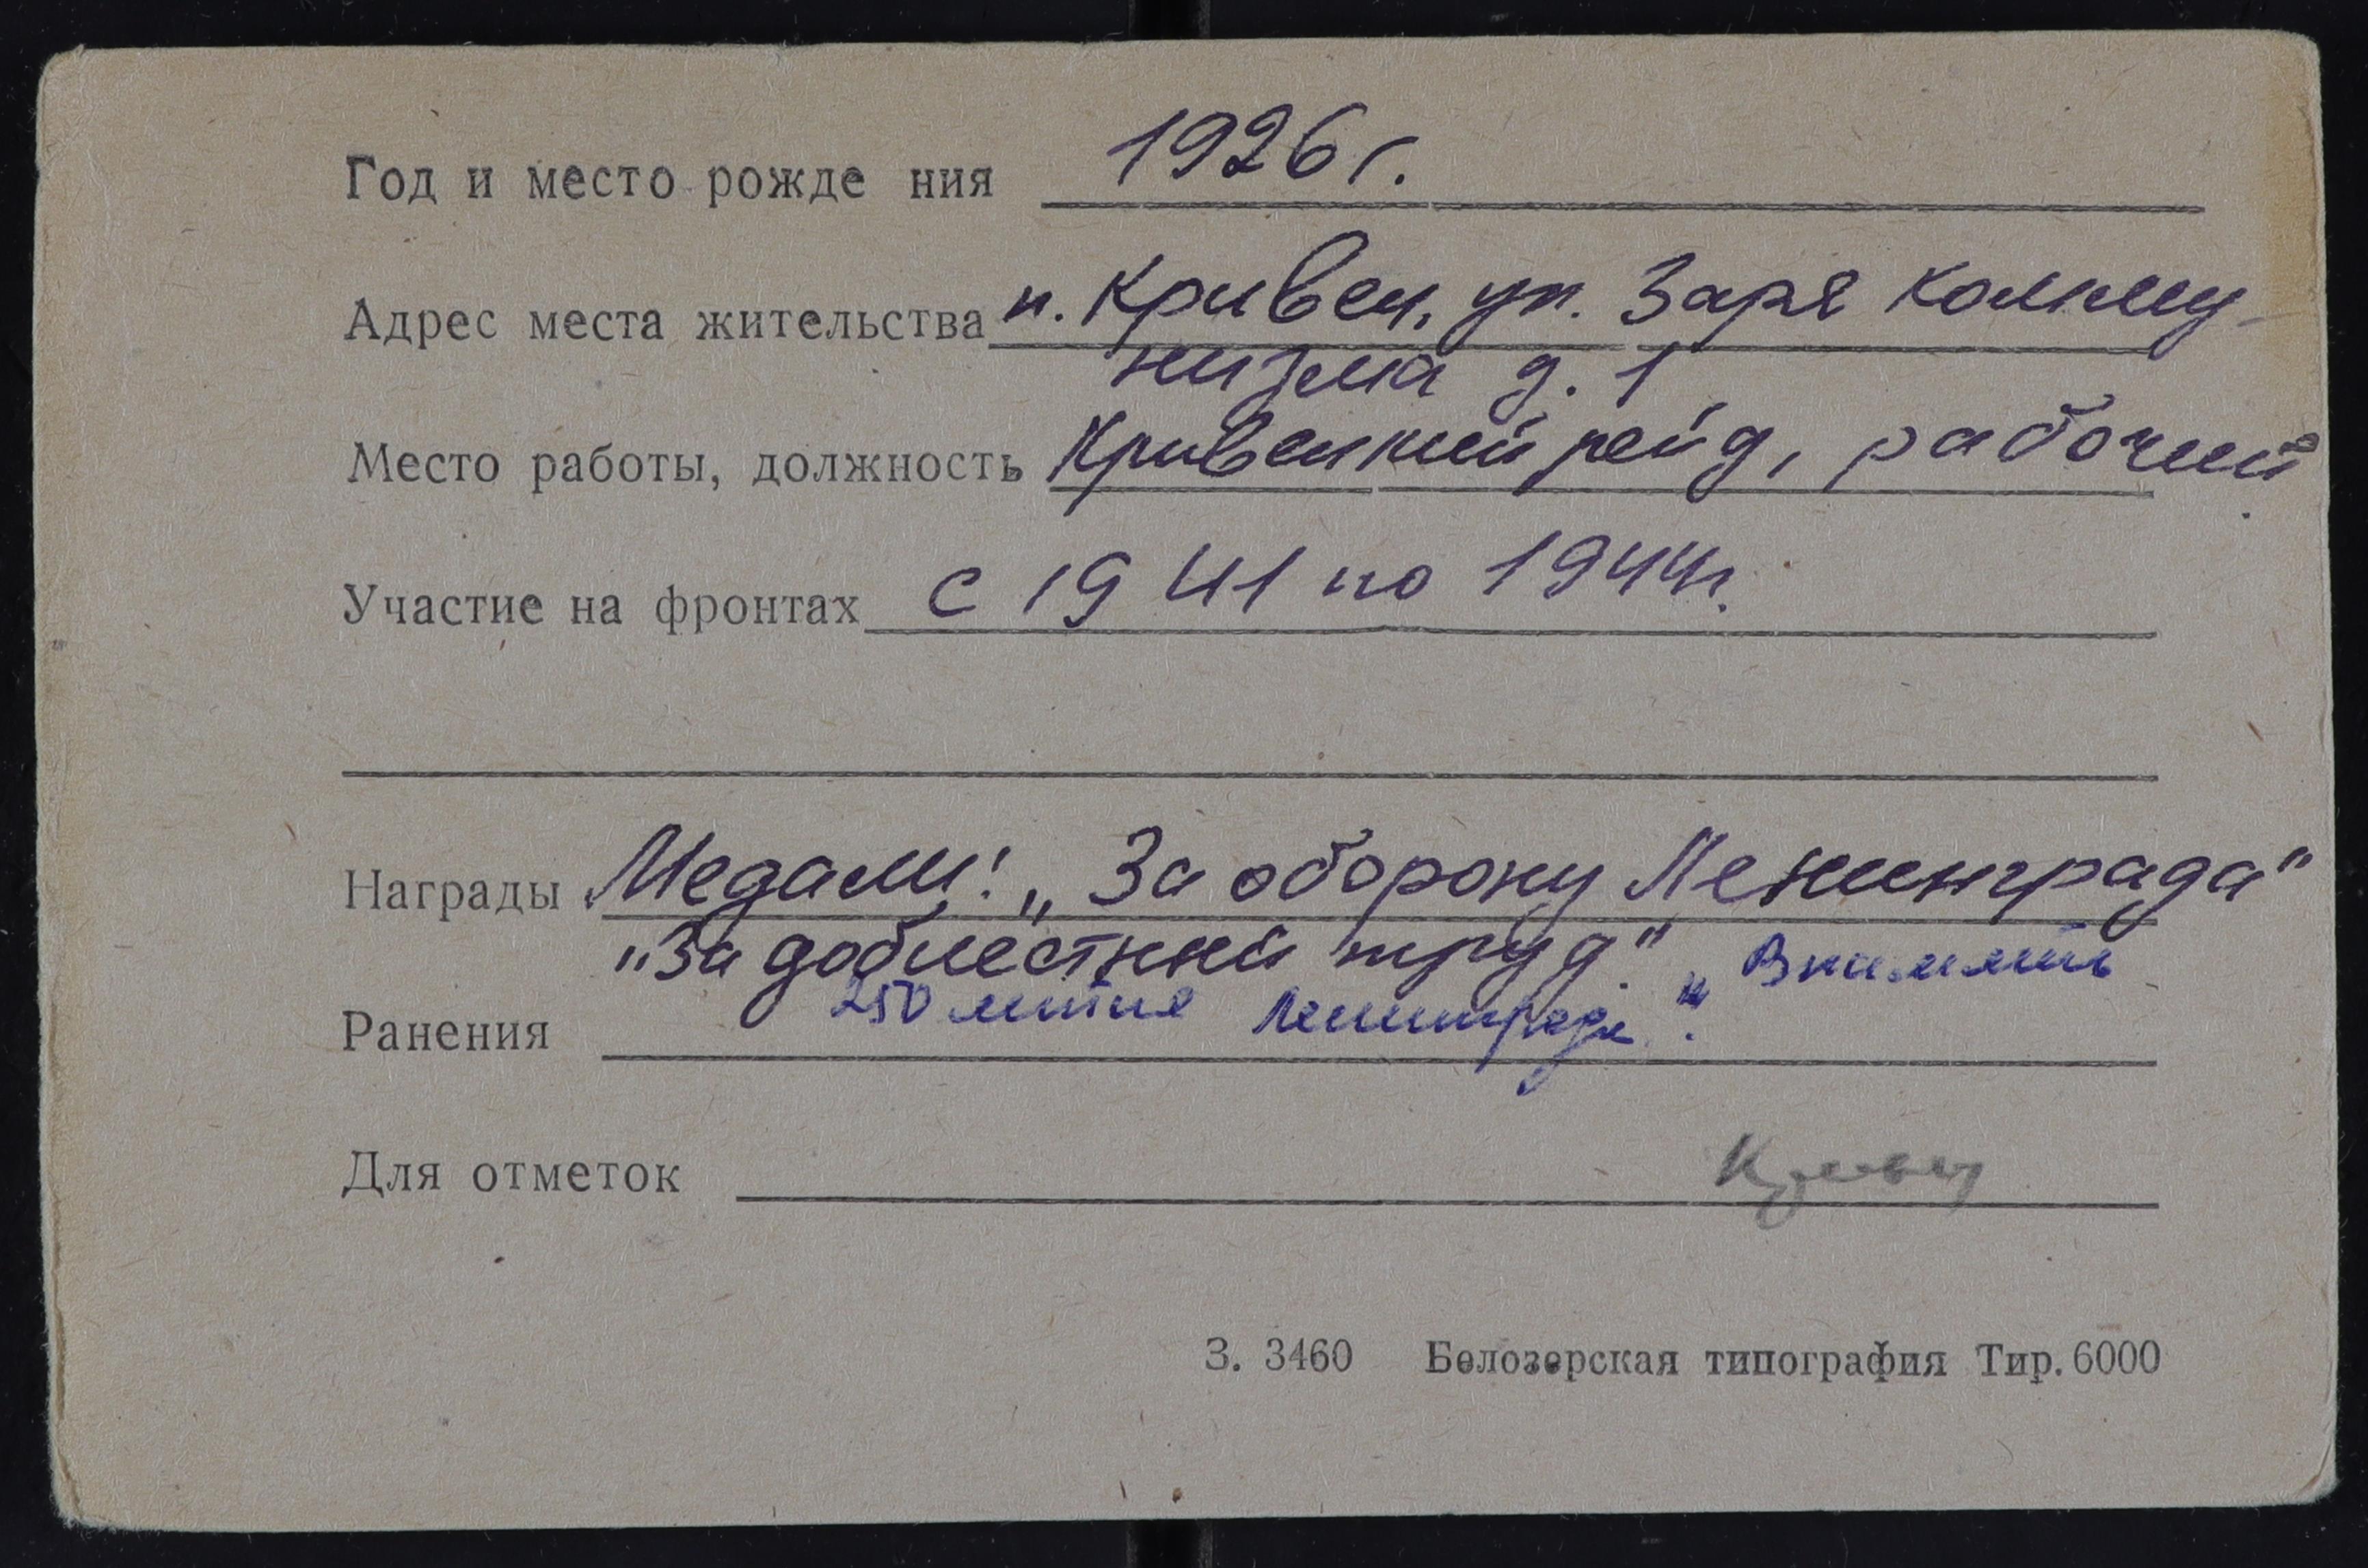 Год и место рожде ния 1926 г.
Адрес места жительства п. Кривец, ул. Заря комму-
низма д. 1
Место работы, должность Кривецкий рейд, рабочий
Участие на фронтах с 1941 по 1944 г.
Награды Медали: „За оборону Ленинграда"
„За доблестный труд" „В память
Ранения 250 летия Ленинграда".
Для отметок Кривец
З. 3460 Белозерская типография Тир. 6000